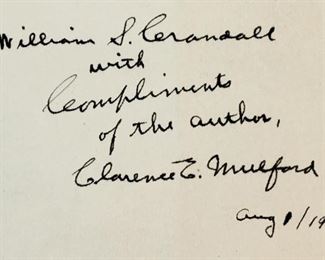 William S. Crandall
with
Compliments
of the author,
Clarence E. Mulford
Aug 1/19